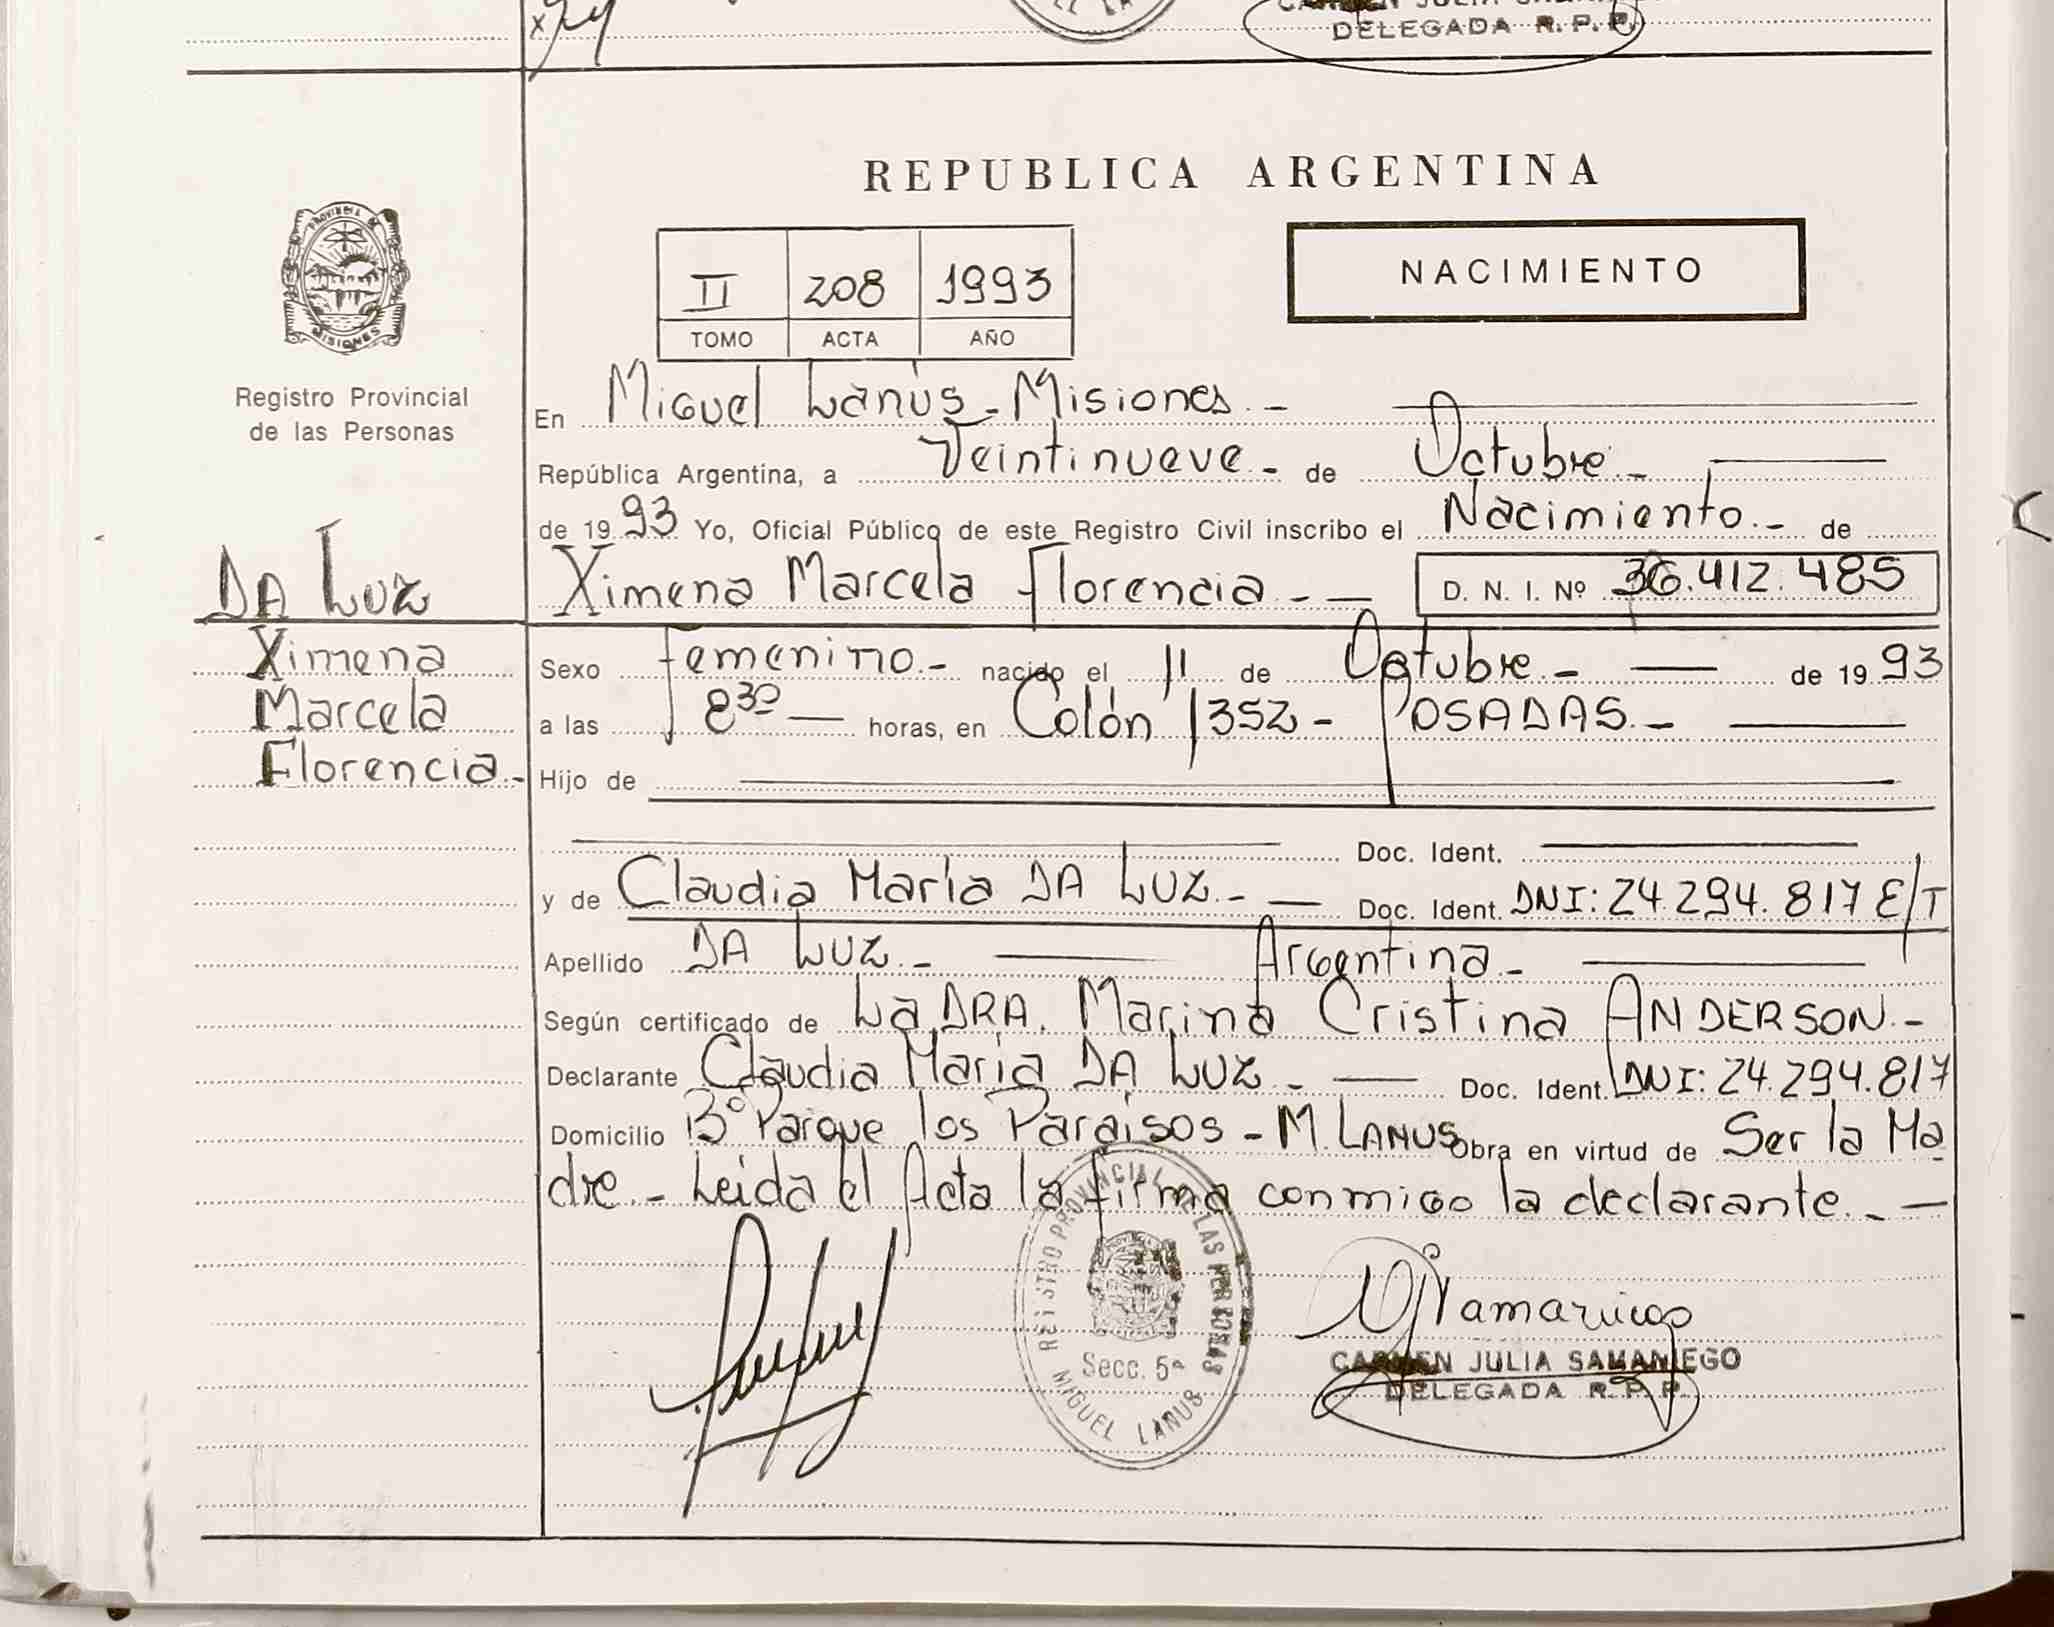 DELEGADA R. P. P.
REPUBLICA ARGENTINA
PROVINCIA DE
MISIONES
II 208 1993
TOMO ACTA AÑO
NACIMIENTO
Registro Provincial
de las Personas
En Miguel Lanús - Misiones. -
República Argentina, a Veintinueve - de Octubre. -
de 1993 Yo, Oficial Público de este Registro Civil inscribo el Nacimiento. - de
DA LUZ
Ximena Marcela Florencia - - D. N. I. Nº 36.412.485
Ximena
Marcela
Florencia. -
Sexo femenino. - nacido el 11 de Octubre. - de 1993
a las 8 30 horas, en Colón 1352 - POSADAS. -
Hijo de
Doc. Ident.
y de Claudia María DA LUZ. - Doc. Ident. DNI: 24.294.817 E/T
Apellido DA LUZ. - Argentina. -
Según certificado de La DRA. Marina Cristina ANDERSON. -
Declarante Claudia María DA LUZ. - Doc. Ident. DNI: 24.294.817
Domicilio Bº Parque los Paraísos - M. LANUS Obra en virtud de Ser la Ma
dre. - Leida el Acta la firma conmigo la declarante. - -
REGISTRO PROVINCIAL DE LAS PERSONAS
Secc. 5ª
MIGUEL LANUS
CARMEN JULIA SAMANIEGO
DELEGADA R. P. P.